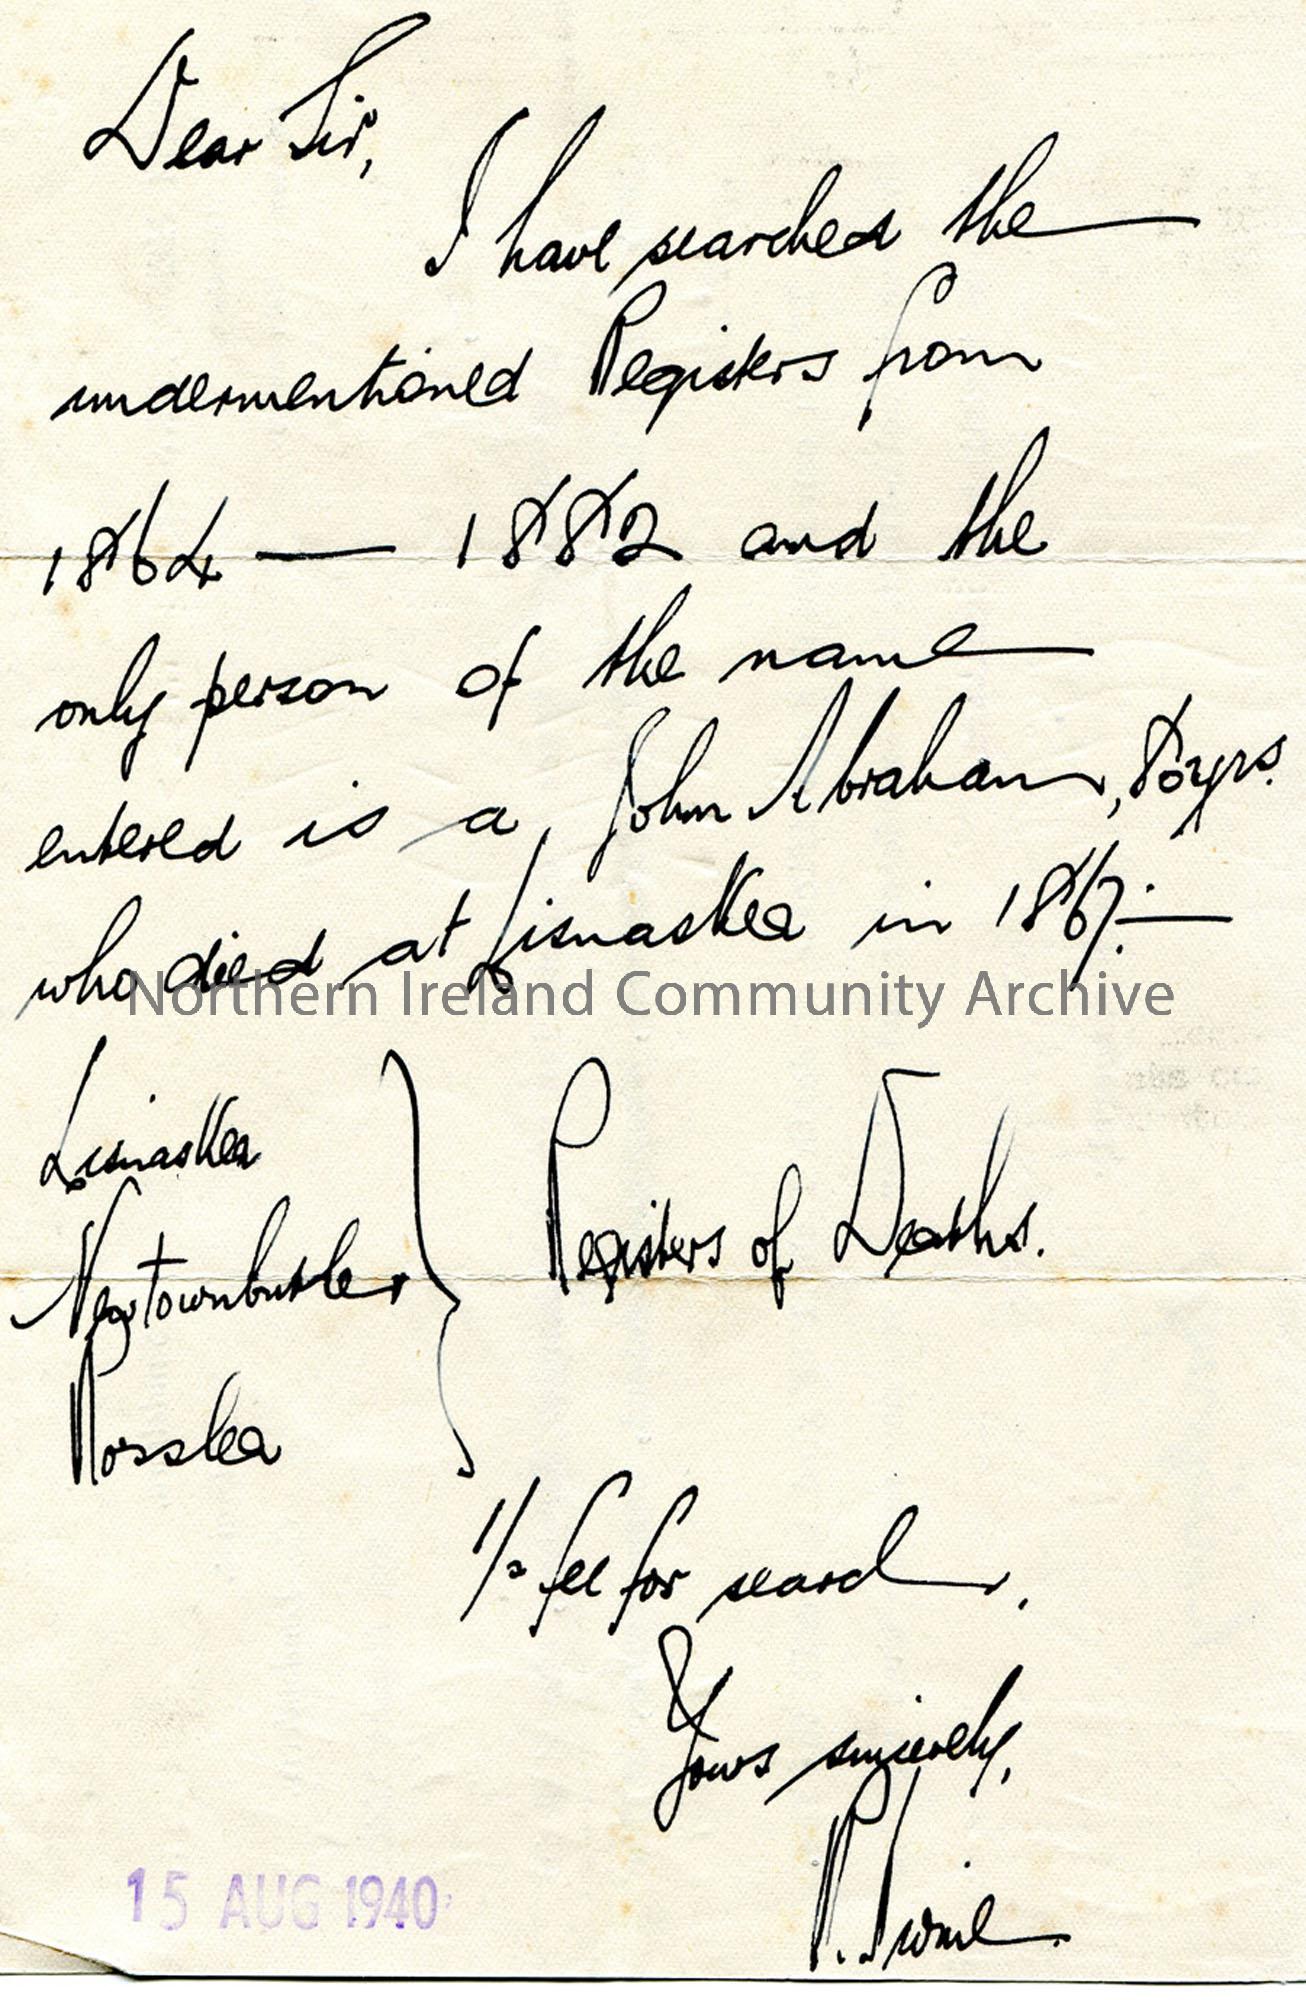 Dear Sir,
I have searched the
undermentioned Registers from
1864 — 1882 and the
only person of the name
entered is a John Abraham, 80yrs.
who died at Lisnaskea in 1867:—
Northern Ireland Community Archive
Lisnaskea
Newtownbutler } Registers of Deaths.
Rosslea
1/= fee for search.
Yours sincerely,
15 AUG 1940